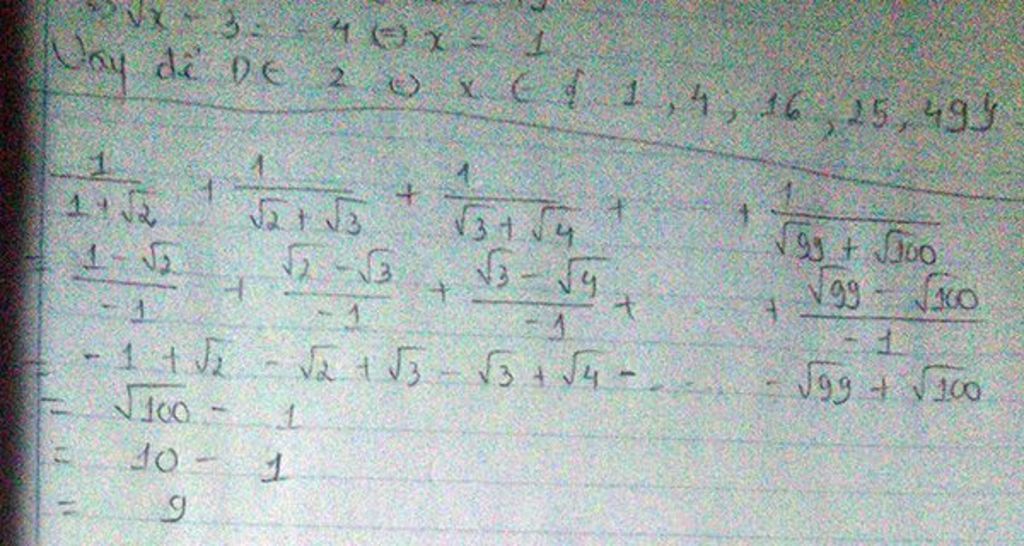 √x - 3 = -4 (=) x = 1
Vay để D ∈ Z (=) x ∈ { 1, 4, 16, 25, 49}
1/(1+√2) + 1/(√2+√3) + 1/(√3+√4) + ..... + 1/(√99+√100)
= (1-√2)/(-1) + (√2-√3)/(-1) + (√3-√4)/(-1) + ..... + (√99-√100)/(-1)
= -1 + √2 - √2 + √3 - √3 + √4 - ..... - √99 + √100
= √100 - 1
= 10 - 1
= 9